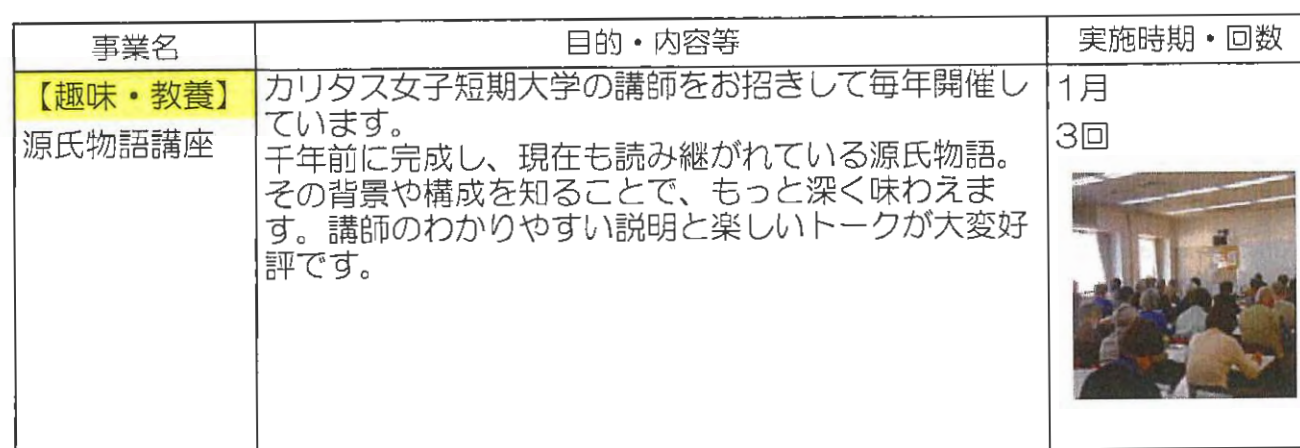 事業名
目的・内容等
実施時期・回数
【趣味・教養】
源氏物語講座
カリタス女子短期大学の講師をお招きして毎年開催し
ています。
千年前に完成し、現在も読み継がれている源氏物語。
その背景や構成を知ることで、もっと深く味わえま
す。講師のわかりやすい説明と楽しいトークが大変好
評です。
1月
3回